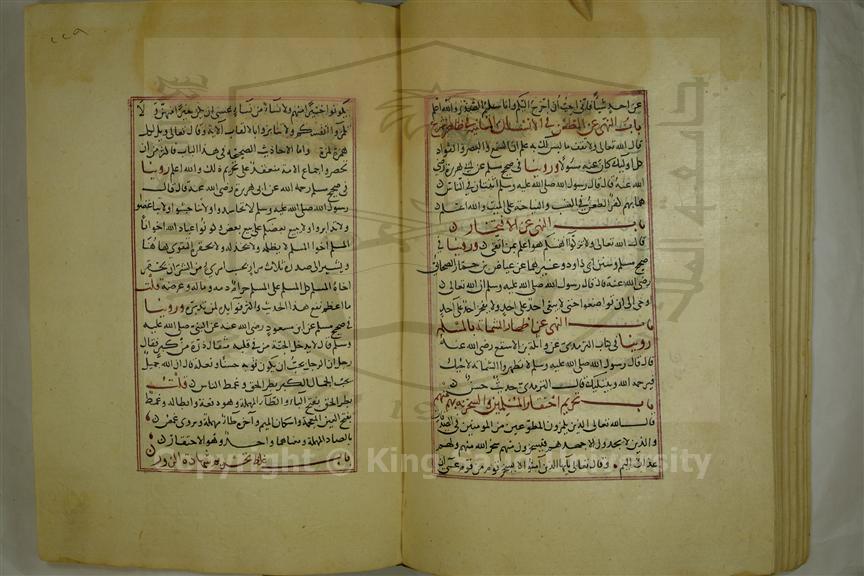 عن احد شيئا فاني احب ان اخرج اليكم وانا سليم الصدر والله اعلم
باب النهي عن الطعن في الانساب الثابتة في ظاهر الشرع
قال الله تعالى ولا تقف ما ليس لك به علم ان السمع والبصر والفؤاد
كل اوليك كان عنه مسئولا وروينا في صحيح مسلم عن ابي هريرة رضي
الله عنه قال قال رسول الله صلى الله عليه وسلم اثنتان في الناس
هما بهم كفر الطعن في النسب والنياحة على الميت والله اعلم
باب النهي عن الافتخار
قال الله تعالى ولا تزكوا انفسكم هو اعلم بمن اتقى وروينا في
صحيح مسلم وسنن ابي داود وغيرهما عن عياض بن حمار الصحابي
رضي الله عنه قال قال رسول الله صلى الله عليه وسلم ان الله تعالى
اوحى الي ان تواضعوا حتى لا يبغي احد على احد ولا يفخر احد على احد
باب النهي عن اظهار الشماتة بالمسلم
روينا في كتاب الترمذي عن واثلة بن الاسقع رضي الله عنه
قال قال رسول الله صلى الله عليه وسلم لا تظهر الشماتة لاخيك
فيرحمه الله ويبتليك قال الترمذي حديث حسن
باب تحريم احتقار المسلمين والسخرية منهم
قال الله تعالى الذين يلمزون المطوعين من المومنين في الصدقات
والذين لا يجدون الا جهدهم فيسخرون منهم سخر الله منهم ولهم
عذاب اليم وقال تعالى يايها الذين آمنوا لا يسخر قوم من قوم عسى ان
٢٢٩
يكونوا خيرا منهم ولا نساء من نساء عسى ان يكن خيرا منهن ولا
تلمزوا انفسكم ولا تنابزوا بالالقاب الاية وقال تعالى ويل لكل
همزة لمزة واما الاحاديث الصحيحة في هذا الباب فاكثر من ان
تحصر واجماع الامة منعقد على تحريم ذلك والله اعلم روينا
في صحيح مسلم رحمه الله عن ابي هريرة رضي الله عنه قال قال
رسول الله صلى الله عليه وسلم لا تحاسدوا ولا تناجشوا ولا تباغضوا
ولا تدابروا ولا يبع بعضكم على بيع بعض وكونوا عباد الله اخوانا
المسلم اخو المسلم لا يظلمه ولا يخذله ولا يحقره التقوى ها هنا
ويشير الى صدره ثلاث مرار بحسب امرئ من الشر ان يحقر
اخاه المسلم كل المسلم على المسلم حرام دمه وماله وعرضه قلت
ما اعظم نفع هذا الحديث واكثر فوايده لمن تدبره وروينا
في صحيح مسلم عن ابن مسعود رضي الله عنه عن النبي صلى الله عليه
وسلم قال لا يدخل الجنة من في قلبه مثقال ذرة من كبر فقال
رجل ان الرجل يحب ان يكون ثوبه حسنا ونعله قال ان الله جميل
يحب الجمال الكبر بطر الحق وغمط الناس قلت
بطر الحق بفتح الباء والطاء المهملة وهو دفعه وابطاله وغمط
بفتح الغين المعجمة واسكان الميم وآخره طاء مهملة ويروى غمص
بالصاد المهملة ومعناهما واحد وهو الاحتقار
باب غلظ تحريم شهادة الزور
جامعة الملك سعود
19
Copyright © King Saud University